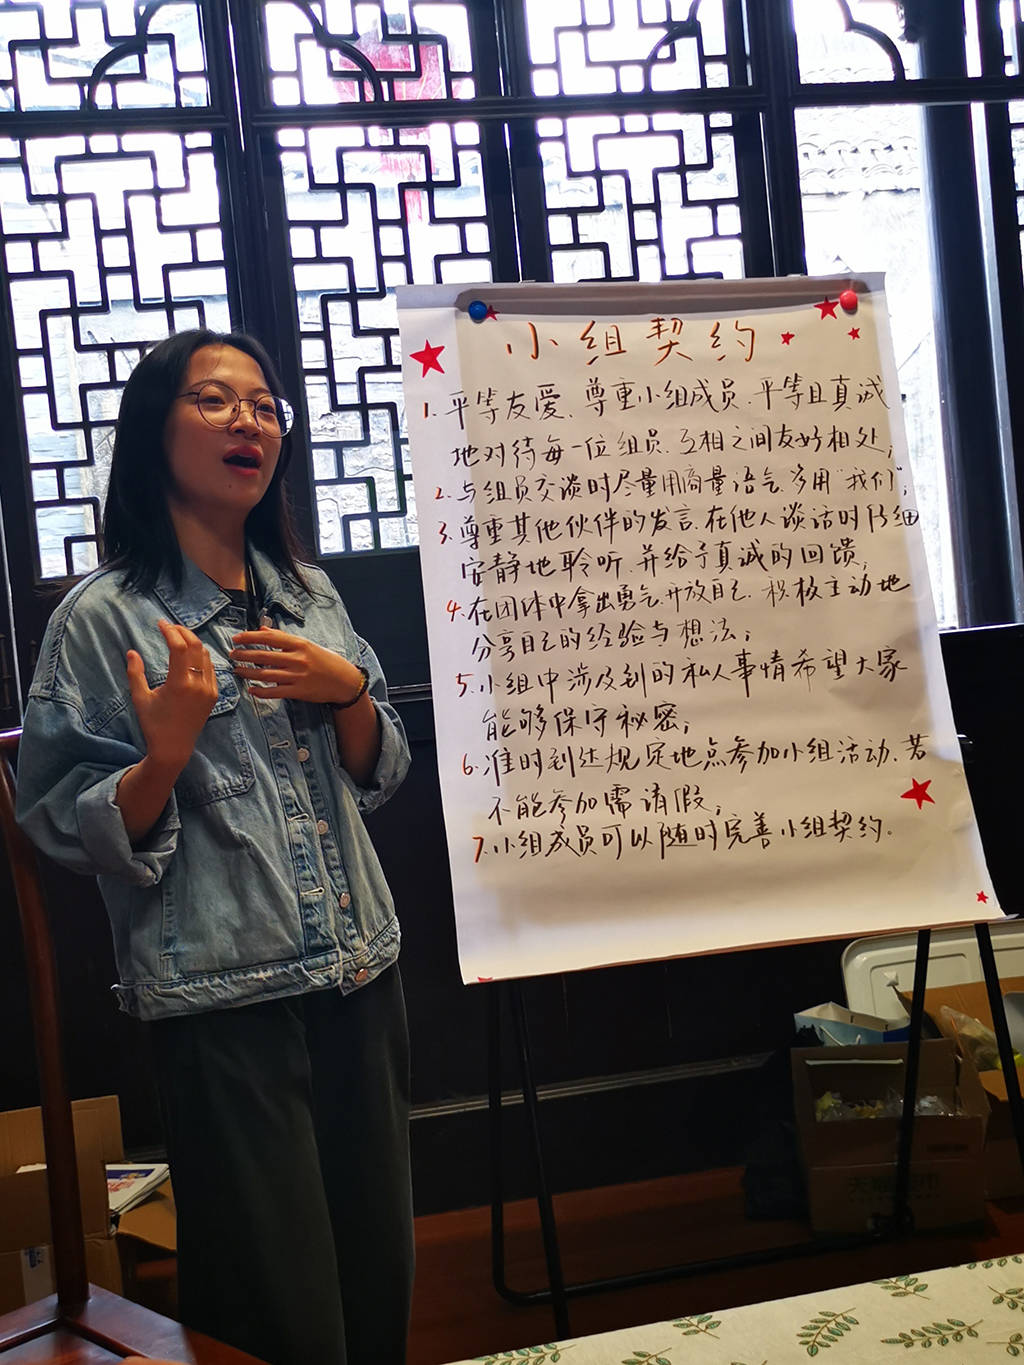 小组契约
1. 平等友爱、尊重小组成员、平等且真诚
地对待每一位组员、互相之间友好相处；
2. 与组员交谈时尽量用商量语气、多用“我们”；
3. 尊重其他伙伴的发言、在他人谈话时仔细
安静地聆听、并给予真诚的回馈；
4. 在团体中拿出勇气、开放自己、积极主动地
分享自己的经验与想法；
5. 小组中涉及到的私人事情希望大家
能够保守秘密；
6. 准时到达规定地点参加小组活动、若
不能参加需请假；
7. 小组成员可以随时完善小组契约。